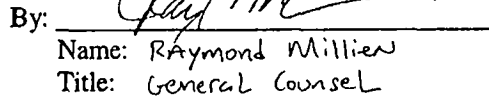 By:
Name: RAymond Millien
Title: General Counsel